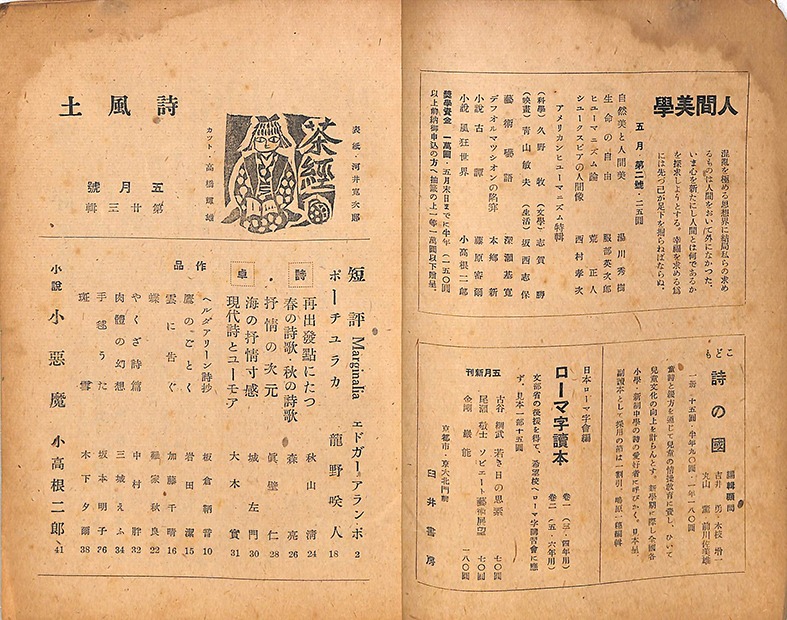 人間美學
混亂を極める思想界に結局私らの求め
るものは人間をおいて外になかつた。
いま心を新たにし人間とは何であるか
を探求しようとする。幸福を求める爲
には先づ己が足下を掘らねばならぬ。
五月 第二號・二五圓
自然美と人間美 湯川秀樹
生命の自由 服部英次郎
ヒューマニズム論 荒正人
シェークスピアの人間像 西村孝次
アメリカンヒューマニズム特輯
(科學) 久野牧 (文學) 志賀勝
(映畫) 青山敏夫 (生活) 坂西志保
藝術秘語 深瀬基寛
デフオルマツシオンの陷穽 本郷新
小説 古譚 藤原審爾
小説 風狂世界 小高根二郎
奬學資金 一萬圓・五月末日までに半年(一五〇圓
以上納御申込の方へ抽籤の上一等一萬圓以下贈呈。
こども
詩の國
編輯顧問
吉井勇・本枝增一
丸山薫・前川佐美雄
一册・十五圓・半年九〇圓・一年一八〇圓
童詩と綴方を通じて兒童の情操教育に資し、ひいて
兒童文化の向上を計らんとす。新學期に際し全國各
小學・新制中學の詩の愛好者に呼びかく。
副讀本として採用の節は一割引・
日本ローマ字會編
ローマ字讀本
卷一(三・四年用)
卷二(五・六年用)
文部省の後援を得て、
ず。見本一部十五圓
五月新刊
古谷綱武 若き日の思索 七〇圓
尾瀬敬士 ソビエート 七〇圓
金剛巖 能 一八〇圓
京都市・京大北門前
臼井書房
詩風土
五月號
第廿三輯
茶經
表紙・河井寛次郎
カット・高橋輝雄
短評 Marginalia エドガー・アラン・ポ 2
ポーチュラカ 龍野咲人 18
詩
再出發點にたつ 秋山清 24
春の詩歌・秋の詩歌 森亮 26
抒情の次元 眞壁仁 28
卓
海の抒情寸感 城左門 30
現代詩とユーモア 大木實 31
作品
ヘルダアリーン詩抄 板倉鞆音 10
鷹のごとく 岩田潔 15
雲に告ぐ 加藤千晴 16
蝶 殿家秋良 22
やくざ詩篇 中村 32
肉體の幻想 三城えふ 34
手毬うた 坂本明子 36
斑雪 木下夕爾 38
小説 小惡魔 小高根二郎 41